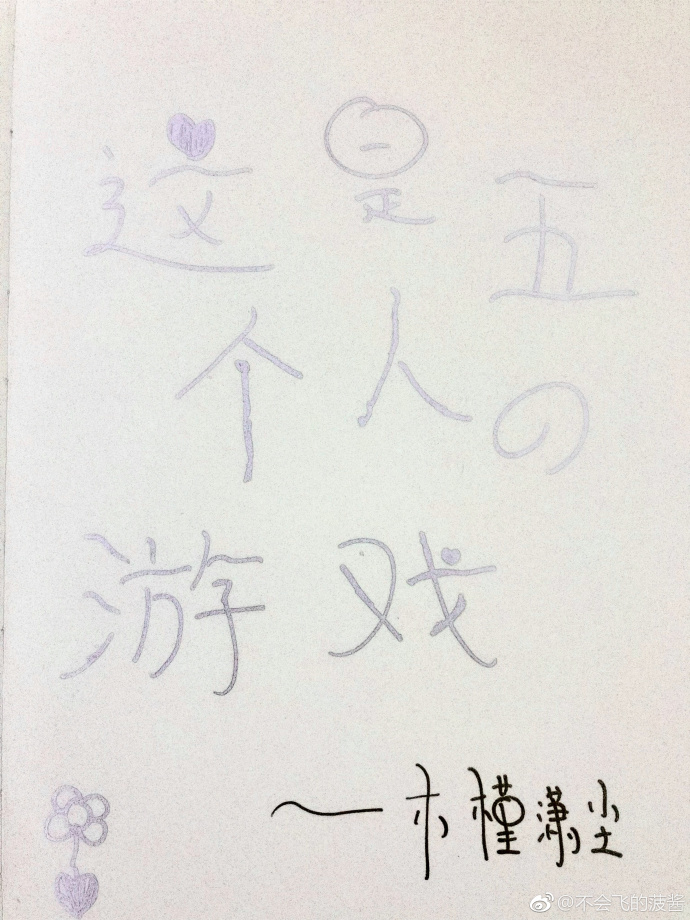 这是五
个人の
游戏
——木槿潇尘
@不会飞的菠酱